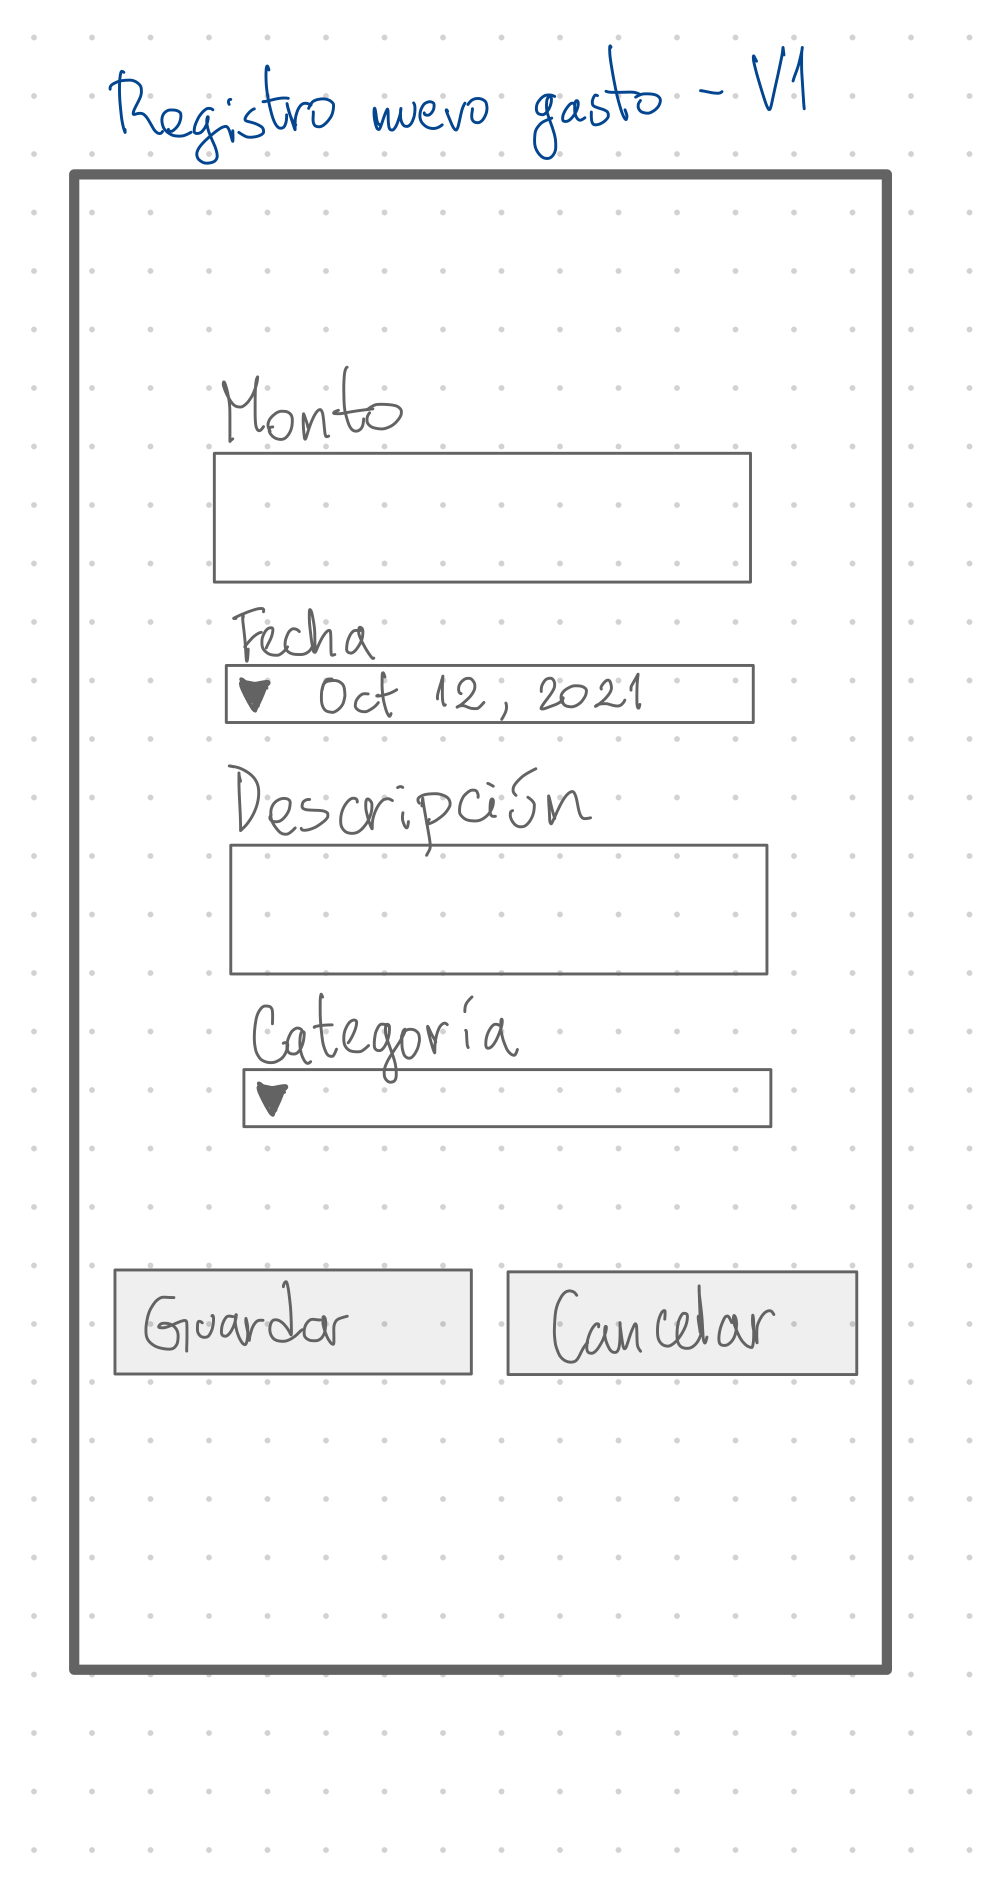 Registro nuevo gasto - V1
Monto
Fecha
Oct 12, 2021
Descripción
Categoría
Guardar
Cancelar